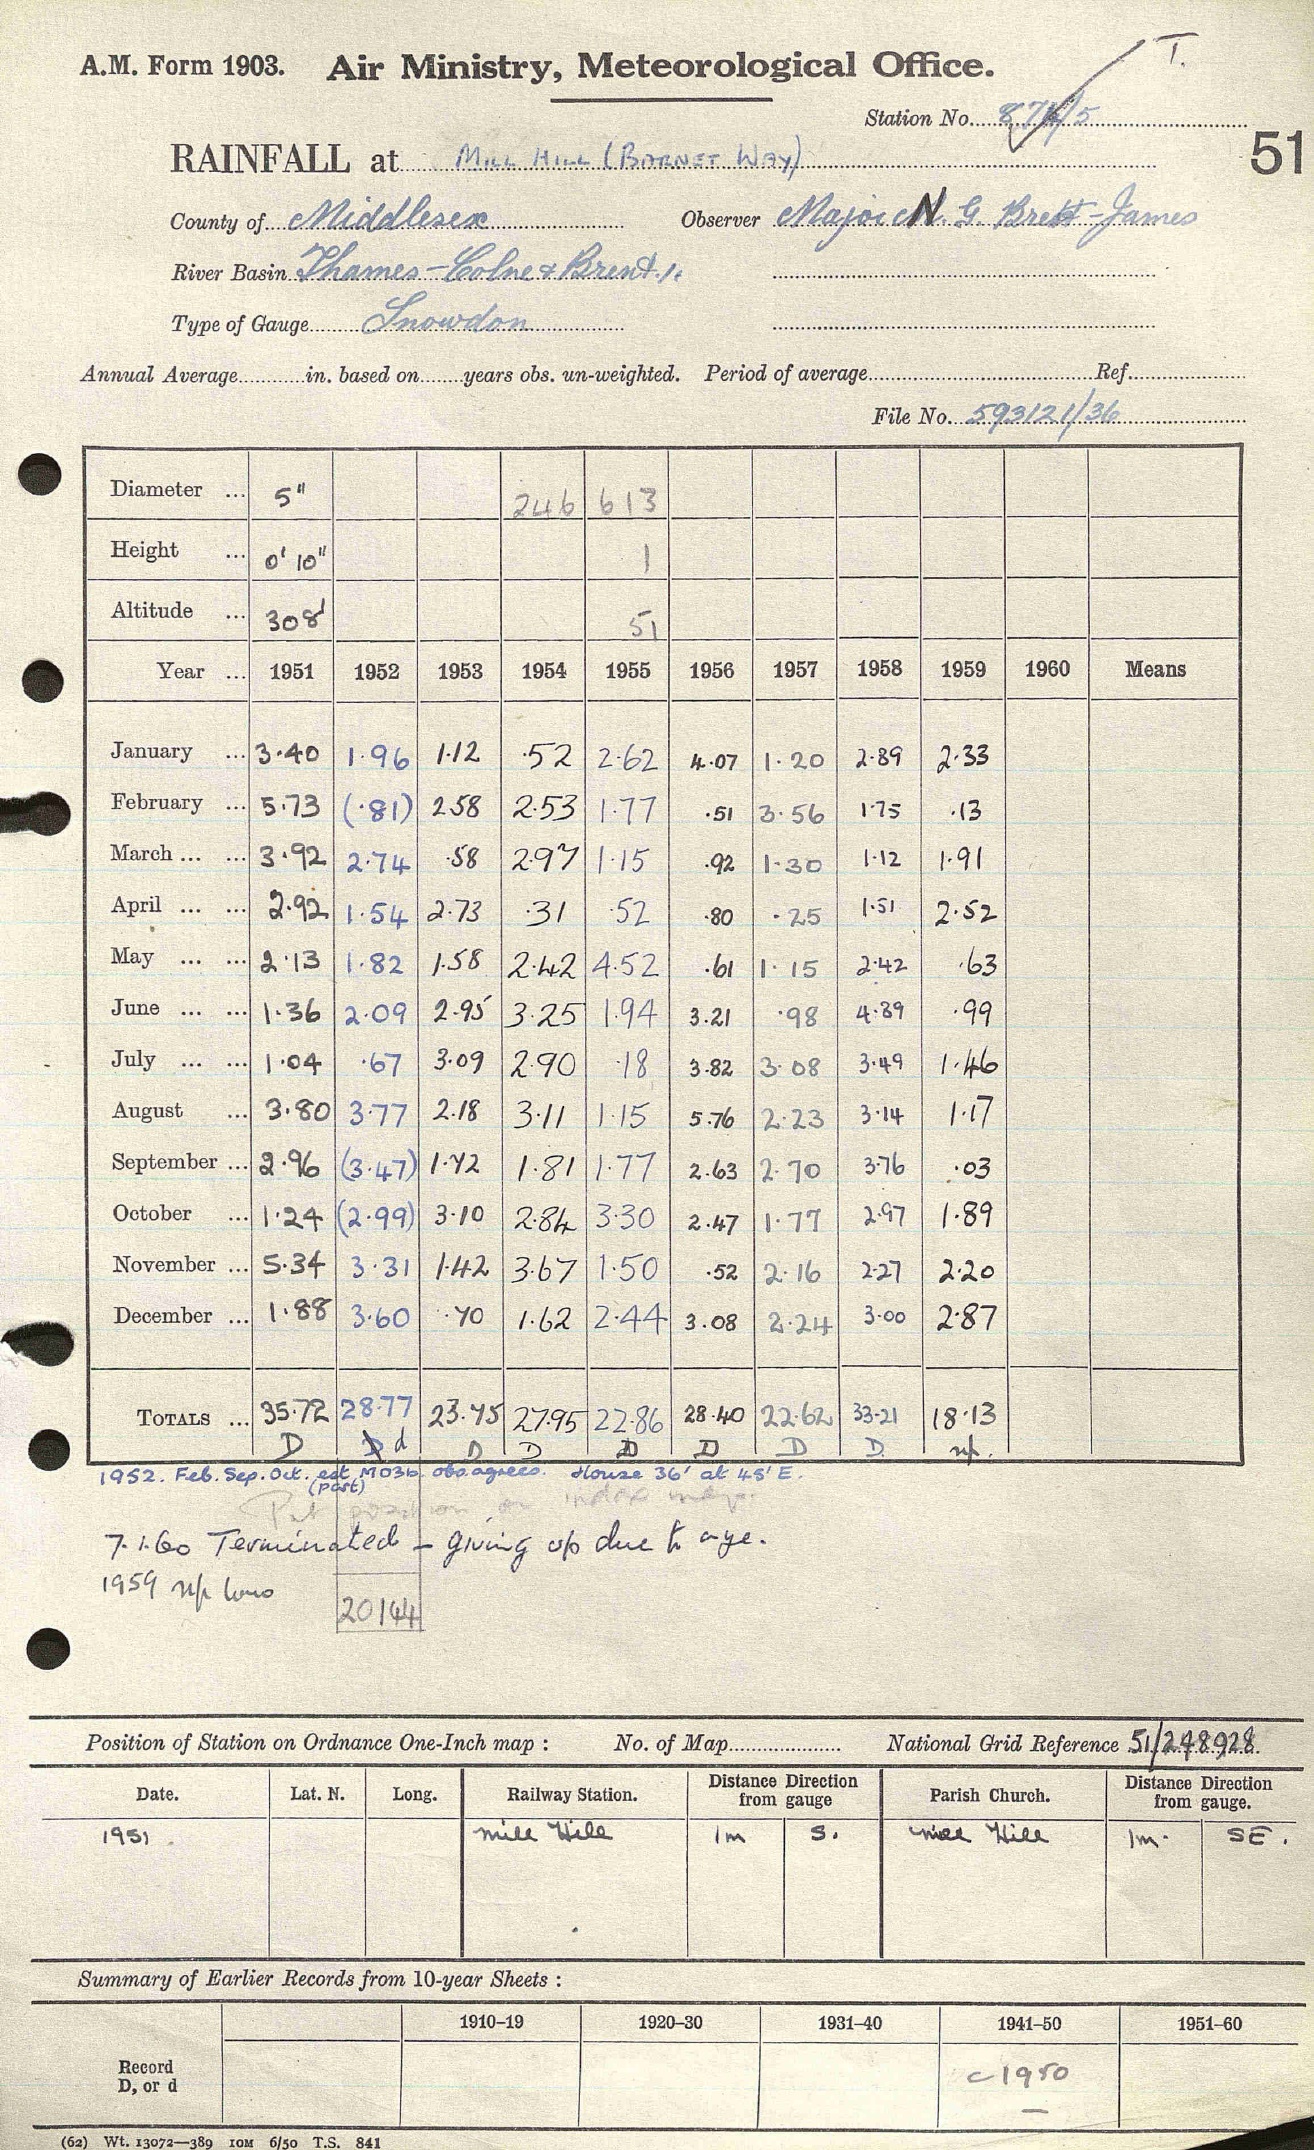 T.
A.M. Form 1903. Air Ministry, Meteorological Office.
Station No. /5
RAINFALL at Mill Hill (Barnet Way) 51
County of Middlesex Observer Major N. G. Brett-James
River Basin Thames-Colne & Brent.
Type of Gauge Snowdon
Annual Average in. based on years obs. un-weighted. Period of average Ref.
File No. 593121/36
Diameter ... 5" 246 613
Height ... 0' 10" 1
Altitude ... 308' 51
Year ... 1951 1952 1953 1954 1955 1956 1957 1958 1959 1960 Means
January ... 3.40 1.96 1.12 .52 2.62 4.07 1.20 2.89 2.33
February ... 5.73 (.81) 2.58 2.53 1.77 .51 3.56 1.75 .13
March ... ... 3.92 2.74 .58 2.97 1.15 .92 1.30 1.12 1.91
April ... ... 2.92 1.54 2.73 .31 .52 .80 .25 1.51 2.52
May ... ... 2.13 1.82 1.58 2.42 4.52 .61 1.15 2.42 .63
June ... ... 1.36 2.09 2.95 3.25 1.94 3.21 .98 4.89 .99
July ... ... 1.04 .67 3.09 2.90 .18 3.82 3.08 3.49 1.46
August ... 3.80 3.77 2.18 3.11 1.15 5.76 2.23 3.14 1.17
September ... 2.96 (3.47) 1.72 1.81 1.77 2.63 2.70 3.76 .03
October ... 1.24 (2.99) 3.10 2.84 3.30 2.47 1.77 2.97 1.89
November ... 5.34 3.31 1.42 3.67 1.50 .52 2.16 2.27 2.20
December ... 1.88 3.60 .70 1.62 2.44 3.08 2.24 3.00 2.87
TOTALS ... 35.72 28.77 23.75 27.95 22.86 28.40 22.62 33.21 18.13
D D d D D D D D D
1952. Feb. Sep. Oct. est M03b. obs. agrees. House 36' at 45° E.
(part)
Put position on index map.
7.1.60 Terminated - giving up due to age.
1959 low
20144
Position of Station on Ordnance One-Inch map : No. of Map National Grid Reference 51/248928
Date. Lat. N. Long. Railway Station. Distance Direction from gauge Parish Church. Distance Direction from gauge.
1951 Mill Hill 1m S. Mill Hill 1m. SE.
Summary of Earlier Records from 10-year Sheets :
1910-19 1920-30 1931-40 1941-50 1951-60
Record
D, or d
c 1950
(62) Wt. 13072—389 10M 6/50 T.S. 841